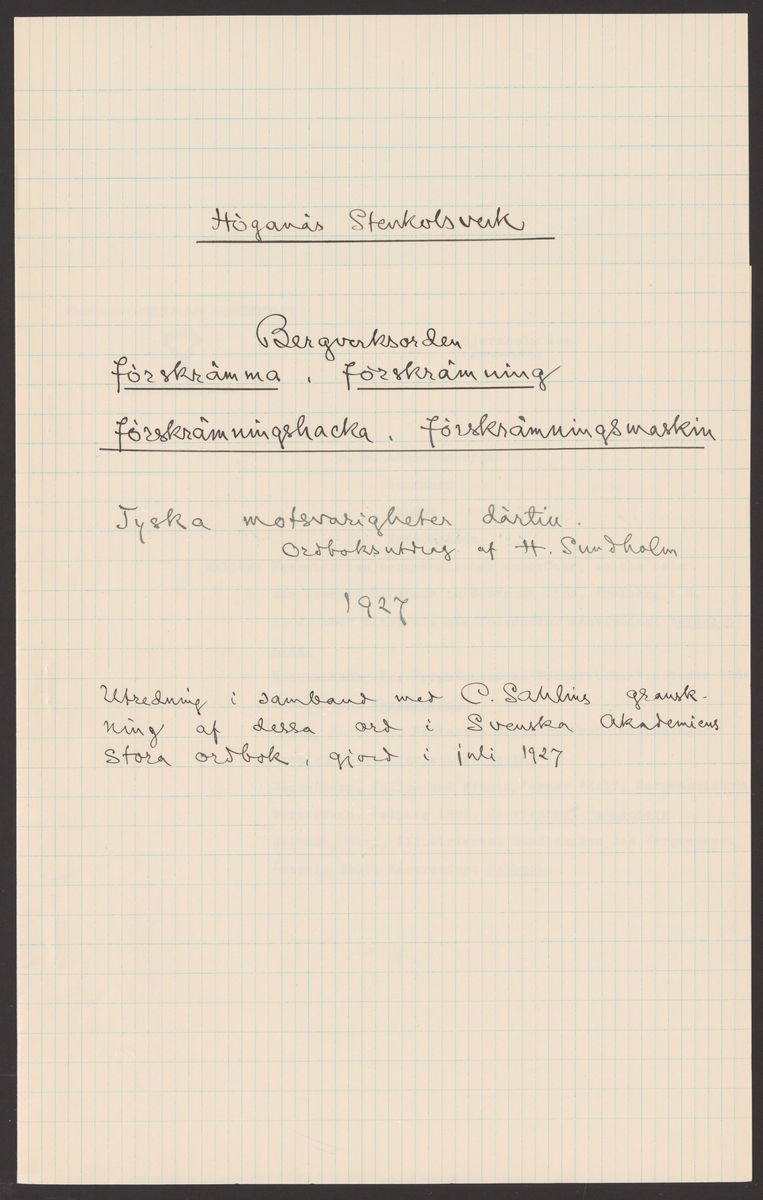 Höganäs Stenkolsverk
Bergverksorden
förskrämma, förskrämning
förskrämningshacka, förskrämningsmaskin
Tyska motsvarigheter därtill.
Ordboksutdrag af H. Sundholm
1927
Utredning i samband med C. Sahlins gransk-
ning af dessa ord i Svenska Akademiens
Stora ordbok, gjord i juli 1927